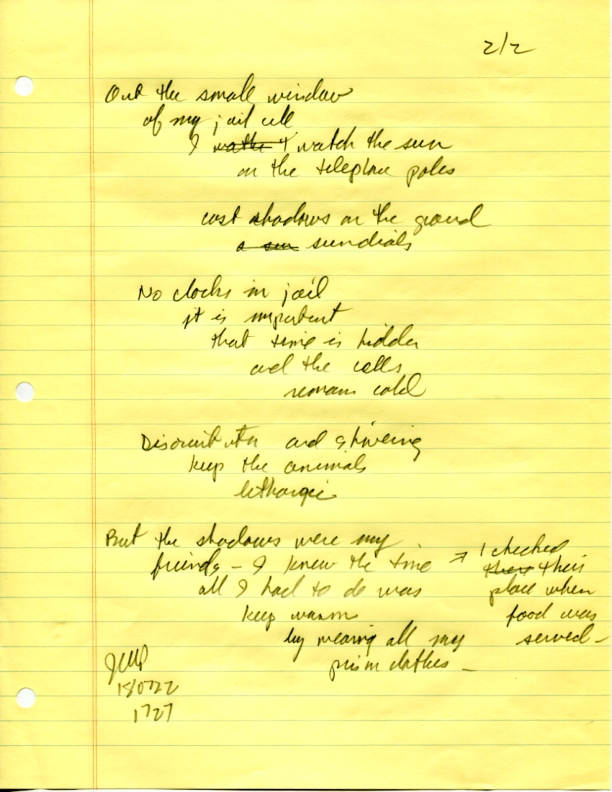 2/2
Out the small window
of my jail cell
I watch the sun
on the telephone poles
cast shadows on the ground
a sun sundials
No clocks in jail
it is important
that time is hidden
and the cells
remain cold
and shivering
keep the animals
lethargic
But the shadows were my
friends - I knew the time → I checked
all I had to do was
their
place when
keep warm
food was
by wearing all my
served -
prison clothes -
1727